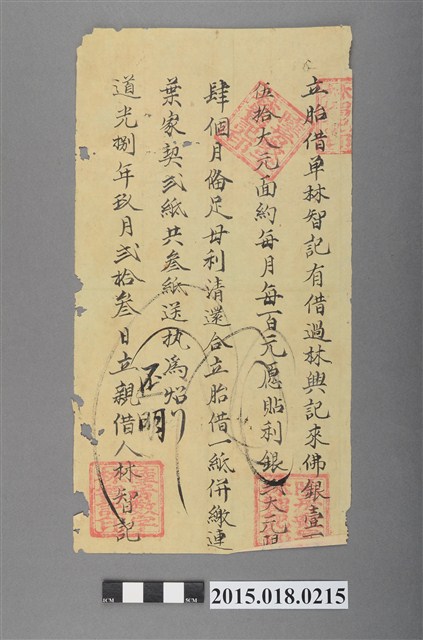 立胎借单林智記有借過林興記來佛銀壹
伍拾大元面約每月每百元愿貼利銀弍大元限
肆個月俻足母利清還合立胎借一紙併繳連
葉家契弍紙共叁紙送执為炤
丕明
道光捌年玖月弍拾叁日立親借人林智記
CM
2015.018.0215